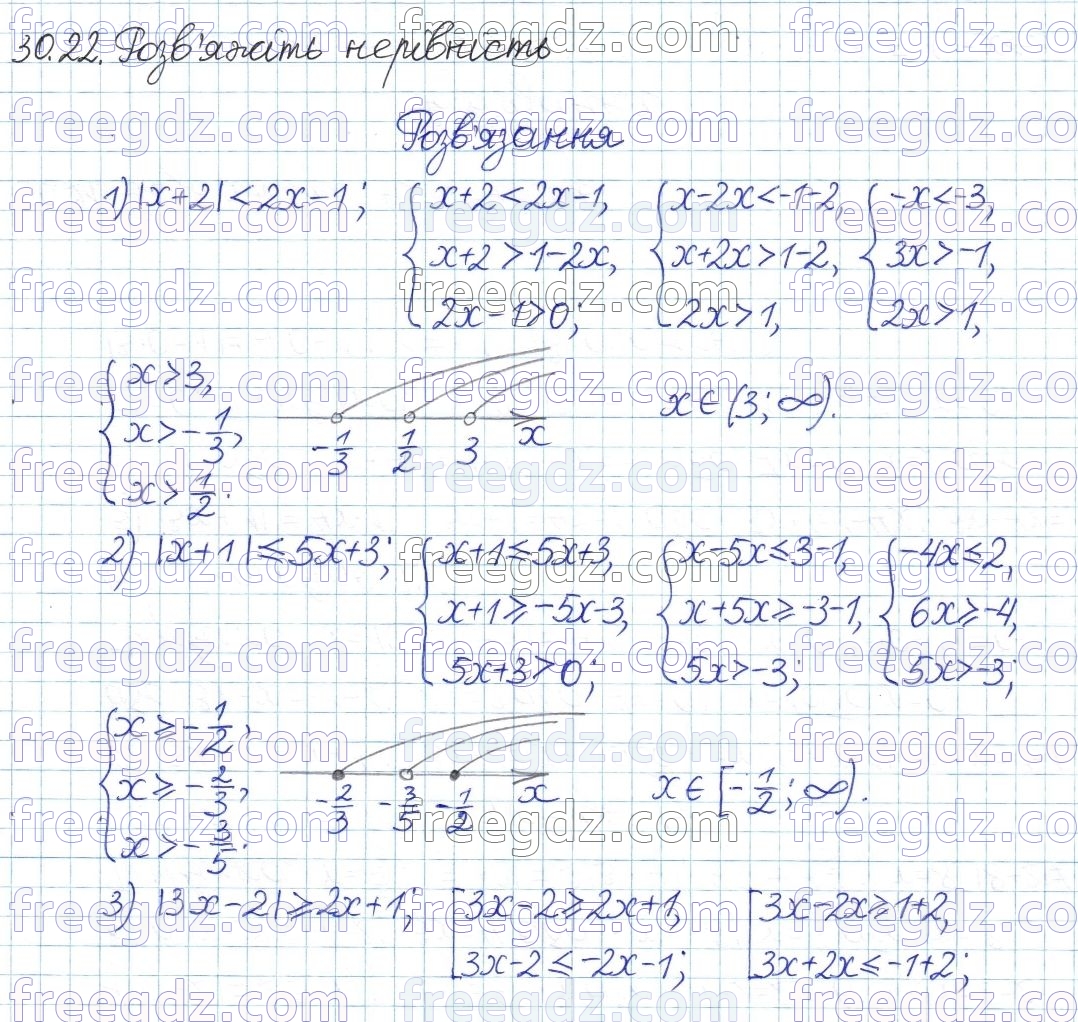 30.22. Розв'яжіть нерівність
Розв'язання
1) |x+2|<2x-1; { x+2<2x-1, x+2>1-2x, 2x-1>0; { x-2x<-1-2, x+2x>1-2, 2x>1, { -x<-3, 3x>-1, 2x>1,
{ x>3, x>-1/3, x>1/2. -1/3 1/2 3 x x∈(3; ∞).
2) |x+1|≤5x+3; { x+1≤5x+3, x+1≥-5x-3, 5x+3>0; { x-5x≤3-1, x+5x≥-3-1, 5x>-3; { -4x≤2, 6x≥-4, 5x>-3;
{ x≥-1/2, x≥-2/3, x>-3/5. -2/3 -3/5 -1/2 x x∈[-1/2; ∞).
3) |3x-2|≥2x+1; [ 3x-2≥2x+1, 3x-2≤-2x-1; [ 3x-2x≥1+2, 3x+2x≤-1+2;
freegdz.com